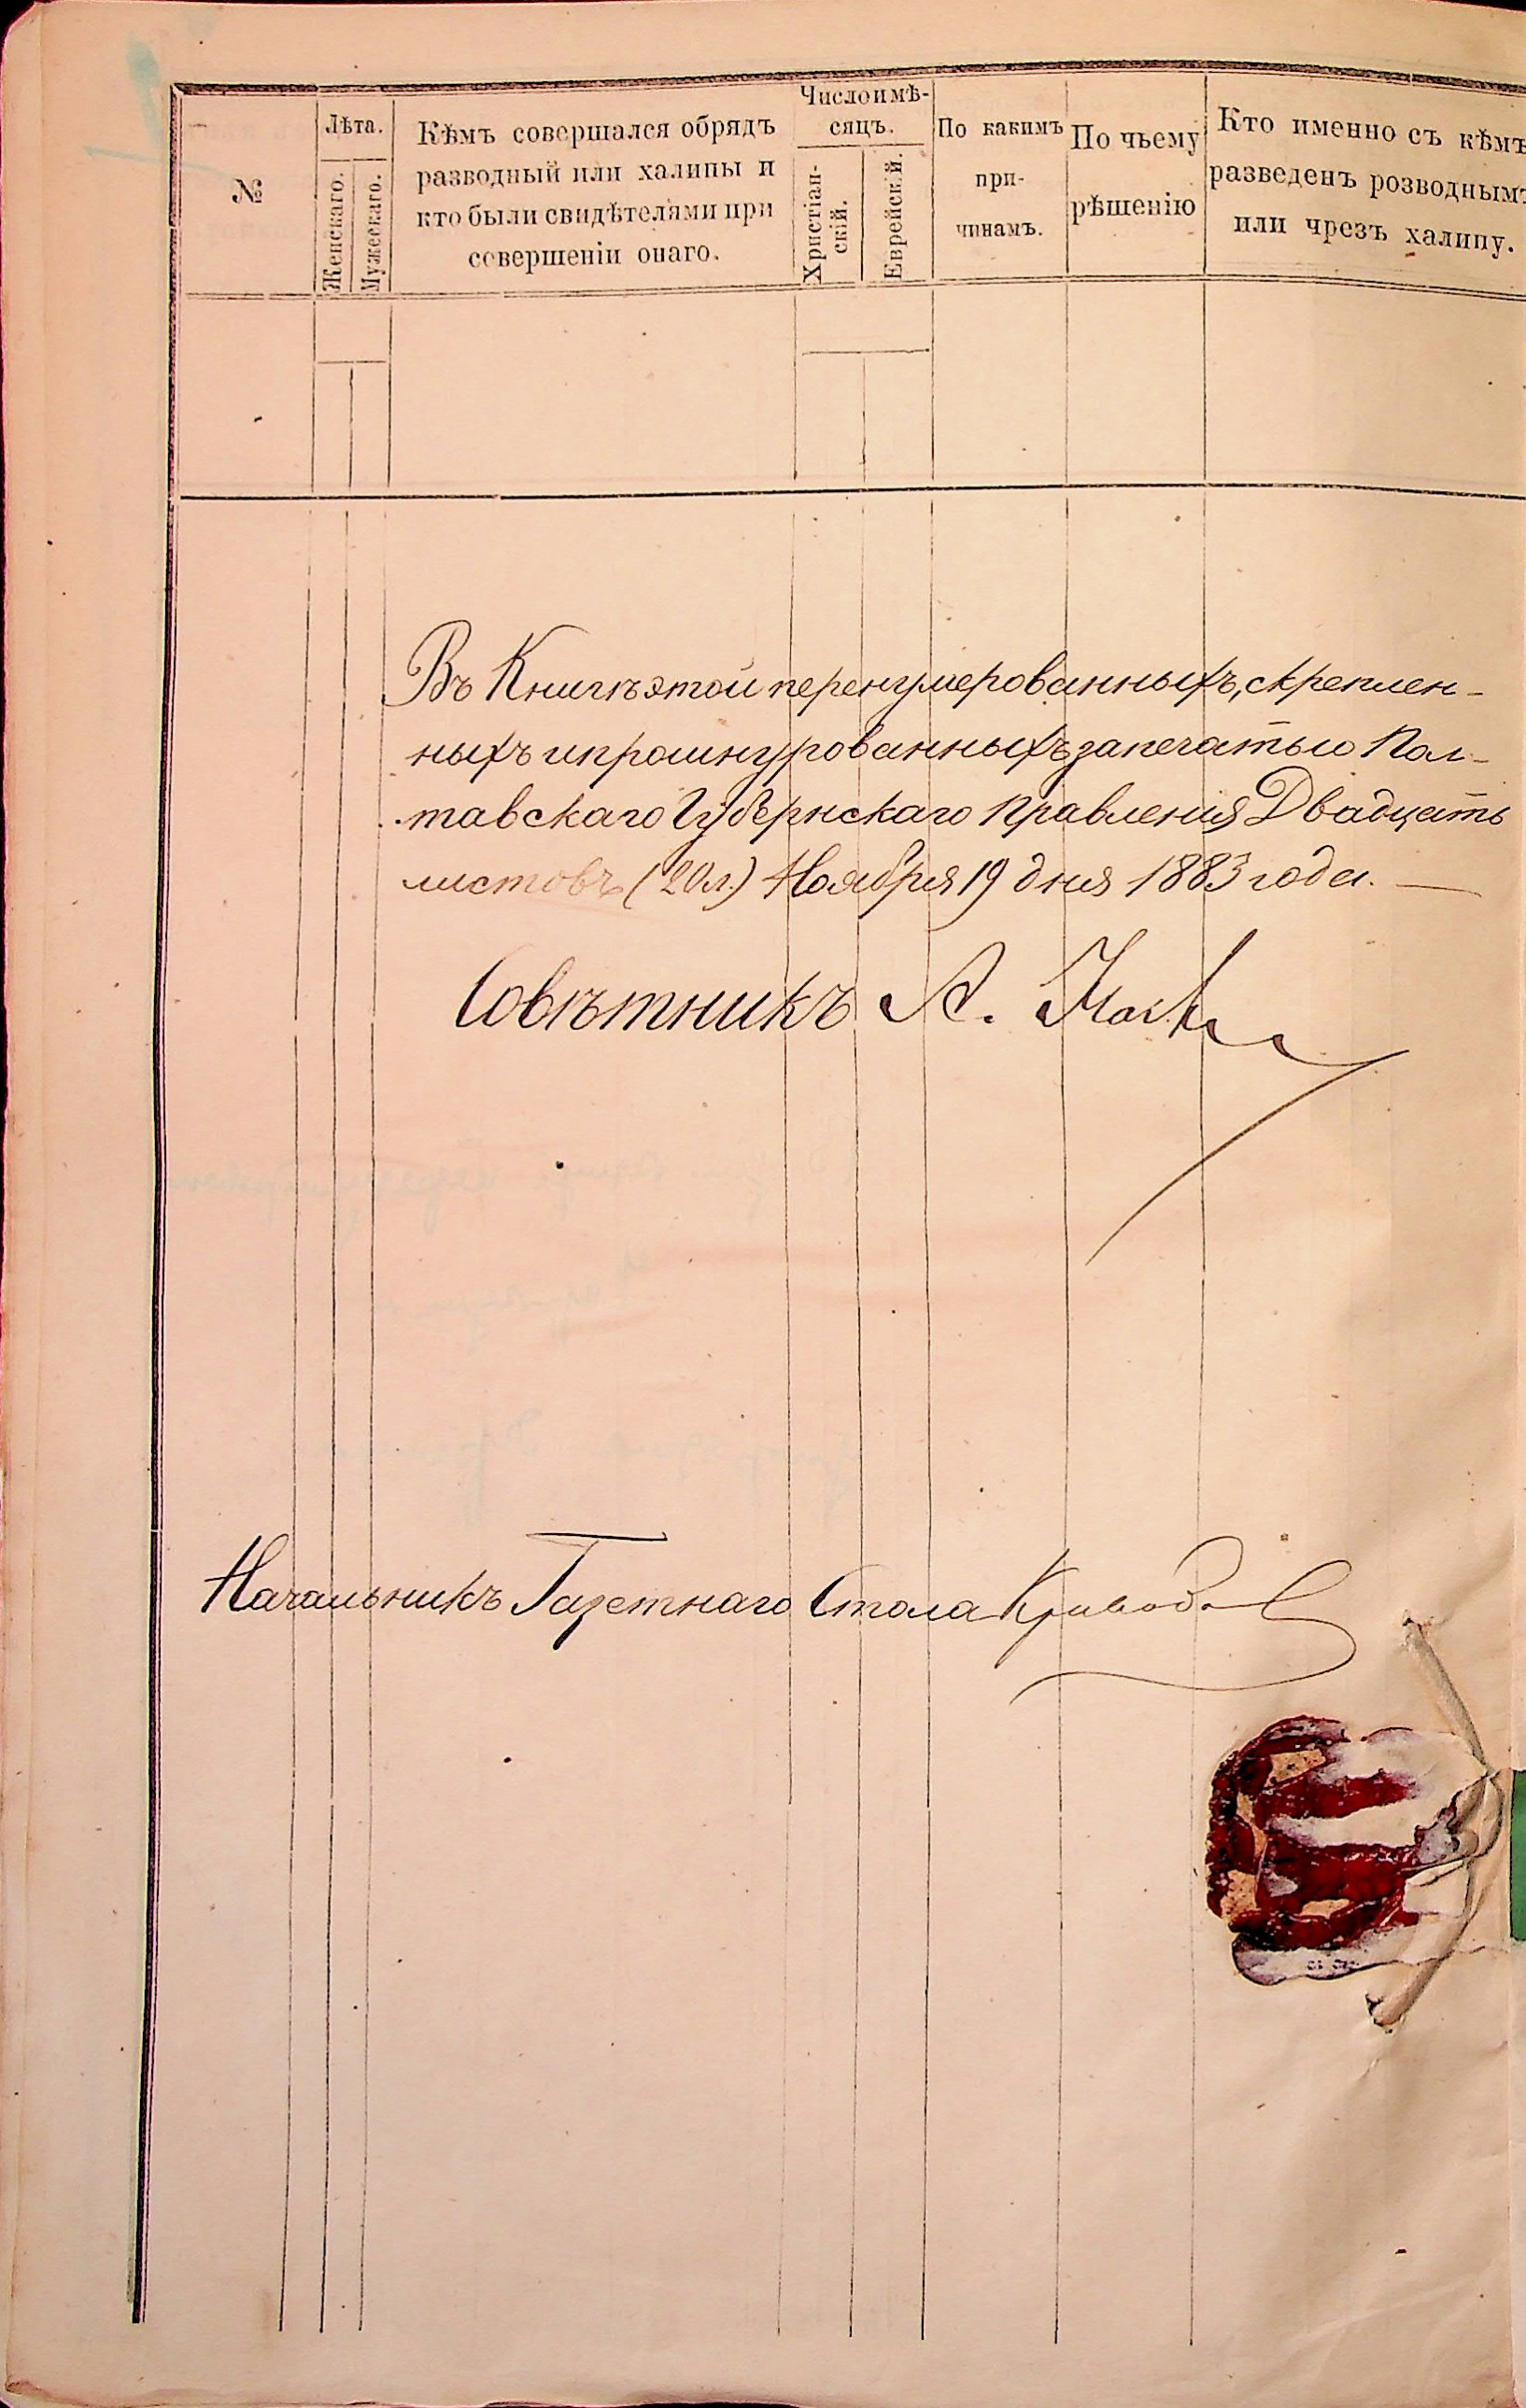 №
Лѣта.
Женскаго.
Мужескаго.
Кѣмъ совершался обрядъ
разводный или халипы и
кто были свидѣтелями при
совершеніи онаго.
Число и мѣ-
сяцъ.
Христіан-
скій.
Еврейскій.
По какимъ
при-
чинамъ.
По чьему
рѣшенію
Кто именно съ кѣмъ
разведенъ розводнымъ
или чрезъ халипу.
Въ Книгѣ этой перенумерованныхъ, скреплен-
ныхъ и прошнурованныхъ за печатью Пол-
тавскаго Губернскаго Правленія Двадцать
листовъ (20 л.) Ноября 19 дня 1883 года. —
Совѣтникъ А.
Начальникъ Газетнаго Стола